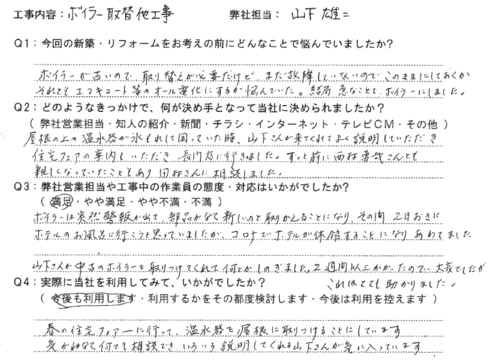 工事内容:ボイラー取替他工事 弊社担当:山下雄二
Q1:今回の新築・リフォームをお考えの前にどんなことで悩んでいましたか?
ボイラーが古いので、取り替えが必要だけど、まだ故障していないのでこのままにしておくか
それともエコキュート等のオール電化にするか悩んでいた。結局 急なことでボイラーにしました。
Q2:どのようなきっかけで、何が決め手となって当社に決められましたか?
(弊社営業担当・知人の紹介・新聞・チラシ・インターネット・テレビCM・その他)
屋根の上の温水器が水もれして困っていた時、山下さんが来てくれて よく説明していただき
住宅フェアの案内もいただき 長門店に行きました。ずっと前に西村 さんとも
親しくなっていたこともあり 田村さんに相談しました。
Q3:弊社営業担当や工事中の作業員の態度・対応はいかがでしたか?
(満足・やや満足・やや不満・不満)
ボイラーは突然警報が出て、部品がなく新しいのと取りかえることになり、その間 2日おきに
ホテルのお風呂に行こうと思っていましたが、コロナでホテルが休館することになり あわてました
山下さんが中古のボイラーを取りつけてくれて何とかしのぎました。2週間以上かかったので、大変でしたが
これはとても助かりました。
Q4:実際に当社を利用してみて、いかがでしたか?
(今後も利用します・利用するかをその都度検討します・今後は利用を控えます)
春の住宅フェアーに行って、温水器を屋根に取りつけることにしています
気がねなく何でも相談でき いろいろ説明してくれる山下さんが気に入っています